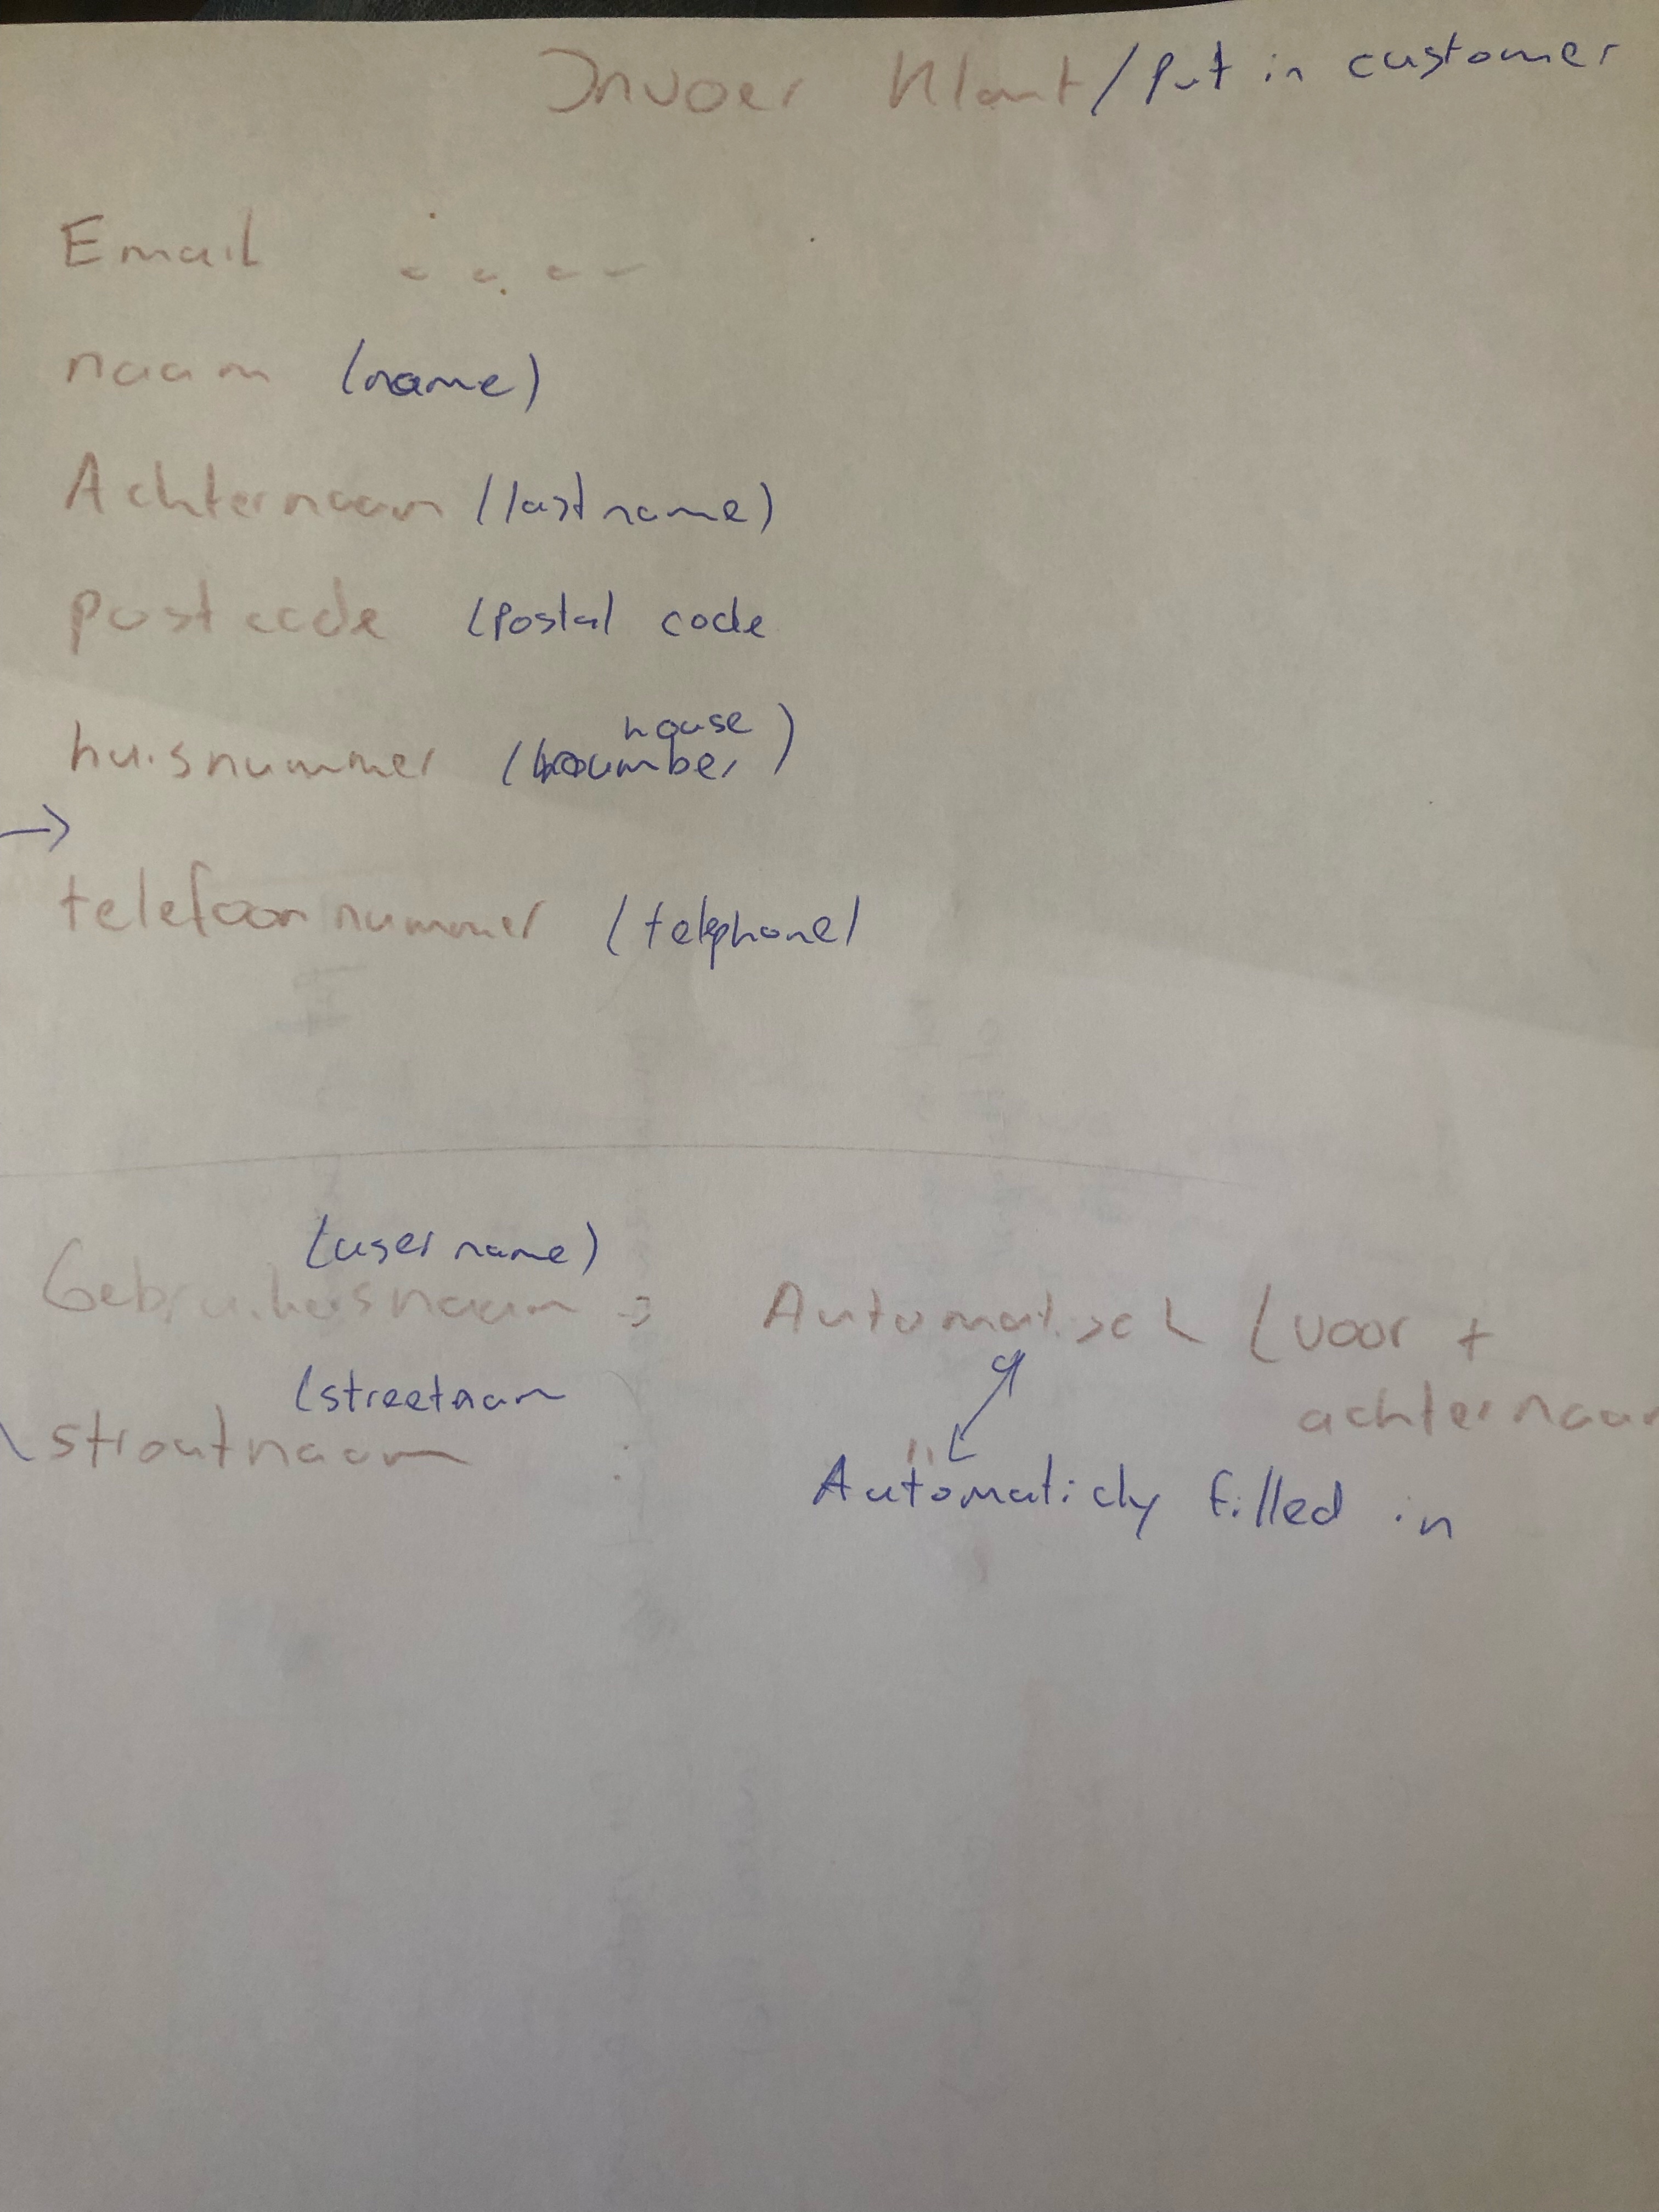 Invoer Klant / Put in customer
Email
naam (name)
Achternaam (lastname)
postcode (Postal code
house
huisnummer (number)
→
telefoonnummer (telephone)
(username)
Gebruikersnaam : Automatisch (voor +
(streetnaam achternaam
straatnaam : "
Automaticly filled in